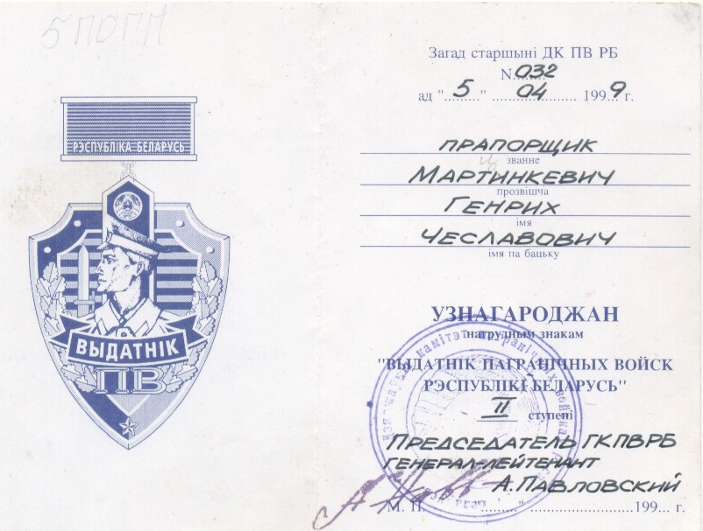 5 ПОГП
РЭСПУБЛІКА БЕЛАРУСЬ
ВЫДАТНІК
ПВ
Загад старшыні ДК ПВ РБ
N 032
ад "5" 04 1999 г.
ПРАПОРЩИК
званне
МАРТИНКЕВИЧ
прозвішча
ГЕНРИХ
імя
ЧЕСЛАВОВИЧ
імя па бацьку
УЗНАГАРОДЖАН
нагрудным знакам
"ВЫДАТНІК ПАГРАНІЧНЫХ ВОЙСК
РЭСПУБЛІКІ БЕЛАРУСЬ"
II ступені
ПРЕДСЕДАТЕЛЬ ГКПВРБ
ГЕНЕРАЛ-ЛЕЙТЕНАНТ
А. ПАВЛОВСКИЙ
М. П. "........" ........................199... г.